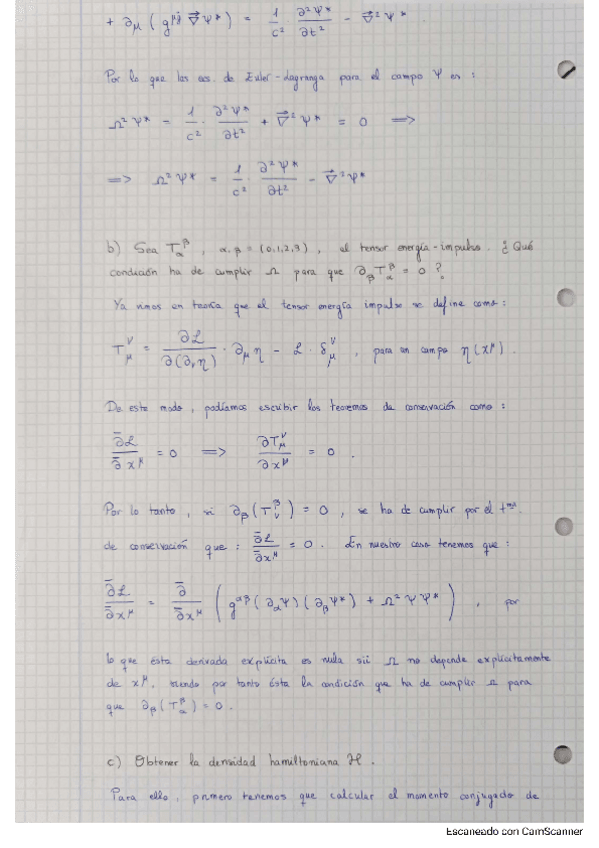 + ∂μ ( g^{μj} ∇⃗ Ψ* ) = 1/c² ∂²Ψ*/∂t² - ∇⃗² Ψ*
Por lo que las ecs. de Euler-Lagrange para el campo Ψ es :
Ω² Ψ* = 1/c² · ∂²Ψ*/∂t² + ∇⃗² Ψ* = 0 ⟹
⟹ Ω² Ψ* = 1/c² · ∂²Ψ*/∂t² - ∇⃗² Ψ*
b) Sea T_α^β , α, β = (0,1,2,3) , el tensor energía-impulso. ¿Qué
condición ha de cumplir Ω para que ∂_β T_α^β = 0 ?
Ya vimos en teoría que el tensor energía impulso se define como :
T_μ^ν = ∂ℒ/∂(∂_ν η) · ∂_μ η - ℒ · δ_μ^ν , para un campo η(x^μ) .
De este modo, podíamos escribir los teoremas de conservación como :
∂̄ℒ/∂̄x^μ = 0 ⟹ ∂T_μ^ν/∂x^μ = 0 .
Por lo tanto, si ∂_β (T_ν^β) = 0 , se ha de cumplir por el t^ma
de conservación que : ∂̄ℒ/∂̄x^μ = 0 . En nuestro caso tenemos que :
∂̄ℒ/∂̄x^μ = ∂̄/∂̄x^μ ( g^{αβ} (∂_α Ψ) (∂_β Ψ*) + Ω² Ψ Ψ* ) , por
lo que ésta derivada explícita es nula sii Ω no depende explícitamente
de x^μ, siendo por tanto ésta la condición que ha de cumplir Ω para
que ∂_β (T_α^β) = 0 .
c) Obtener la densidad hamiltoniana ℋ .
Para ello, primero tenemos que calcular el momento conjugado de
Escaneado con CamScanner